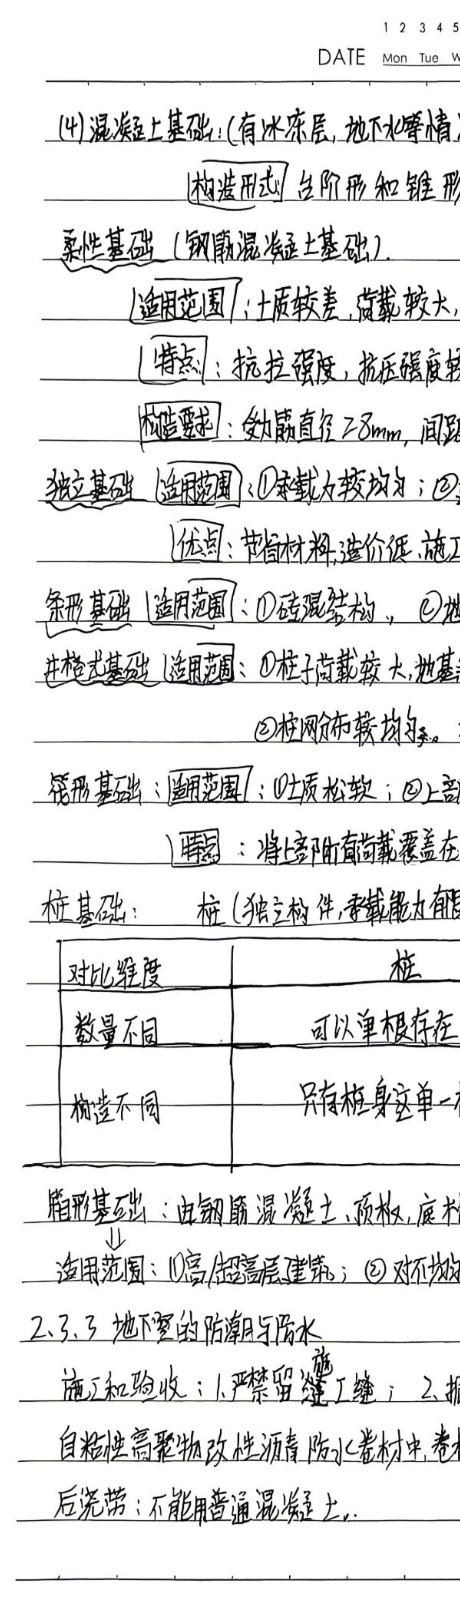 1 2 3 4 5
DATE Mon Tue W
(4)混凝土基础:(有冰冻层,地下水等情
构造形式 台阶形和锥形
柔性基础 (钢筋混凝土基础).
适用范围:土质较差,荷载较大,
特点:抗拉强度,抗压强度较
构造要求:受力筋直径≥8mm,间距
独立基础 适用范围:①承载力较均匀;②
优点:节省材料,造价低,施工
条形基础 适用范围:①砖混结构, ②地
井格式基础 适用范围:①柱子荷载较大,地基
②柱网分布较均匀。
筏形基础:适用范围:①土质松软;②上部
特点:将上部所有荷载覆盖在
桩基础: 桩(独立构件,承载能力有限
对比维度 桩
数量不同 可以单根存在
构造不同 只有桩身这单一
箱形基础:由钢筋混凝土、顶板,底板
⇓
适用范围:①高/超高层建筑;②对不均匀
2.3.3 地下室的防潮与防水
施工和验收:1.严禁留施工缝;2.
自粘性高聚物改性沥青防水卷材中,卷材
后浇带:不能用普通混凝土.